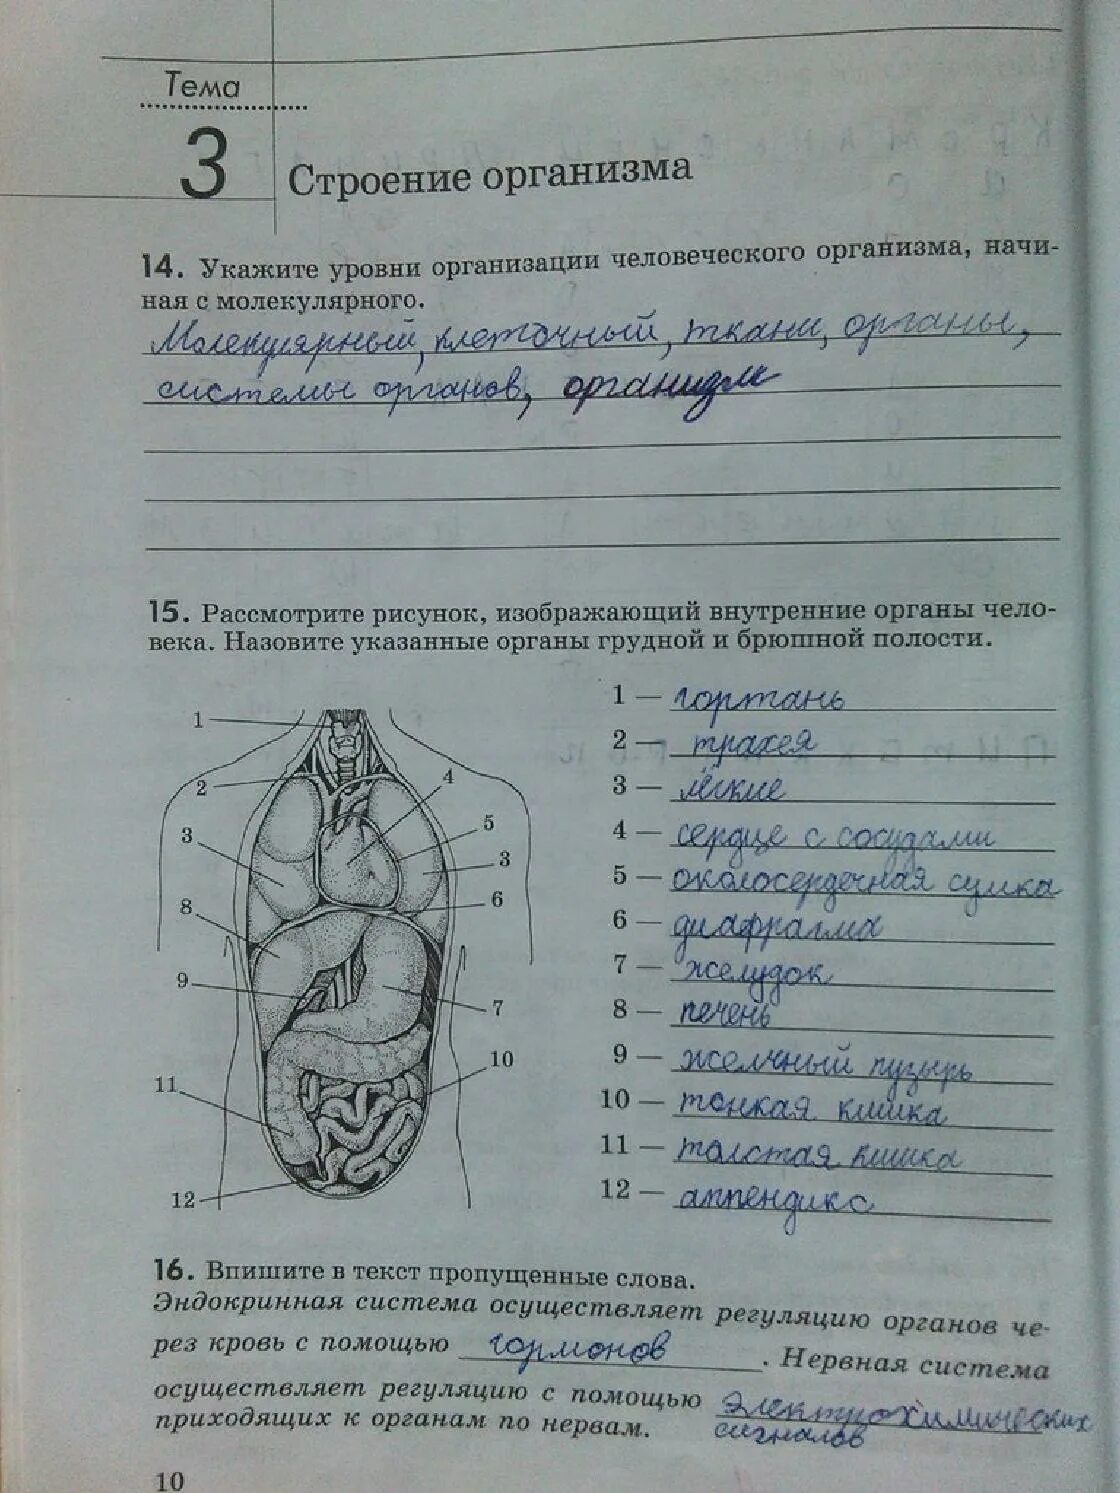 Тема
3
Строение организма
14. Укажите уровни организации человеческого организма, начи-
ная с молекулярного.
Молекулярный, клеточный, ткани, органы,
системы органов, организм
15. Рассмотрите рисунок, изображающий внутренние органы чело-
века. Назовите указанные органы грудной и брюшной полости.
1
2
3
4
5
3
6
8
9
7
10
11
12
1 — гортань
2 — трахея
3 — лёгкие
4 — сердце с сосудами
5 — околосердечная сумка
6 — диафрагма
7 — желудок
8 — печень
9 — желчный пузырь
10 — тонкая кишка
11 — толстая кишка
12 — аппендикс
16. Впишите в текст пропущенные слова.
Эндокринная система осуществляет регуляцию органов че-
рез кровь с помощью гормонов. Нервная система
осуществляет регуляцию с помощью электрохимических
приходящих к органам по нервам. сигналов
10